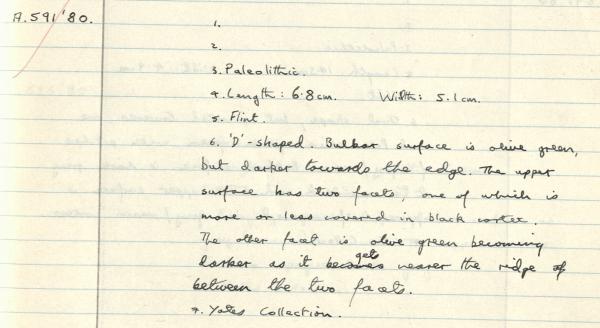 A.591'80.
1.
2.
3. Paleolithic.
4. Length: 6.8cm. Width: 5.1cm.
5. Flint.
6. 'D'-shaped. Bulbar surface is olive green,
but darker towards the edge. The upper
surface has two facets, one of which is
more or less covered in black cortex.
The other facet is olive green becoming
darker as it becomes gets nearer the ridge of
between the two facets.
7. Yates Collection.